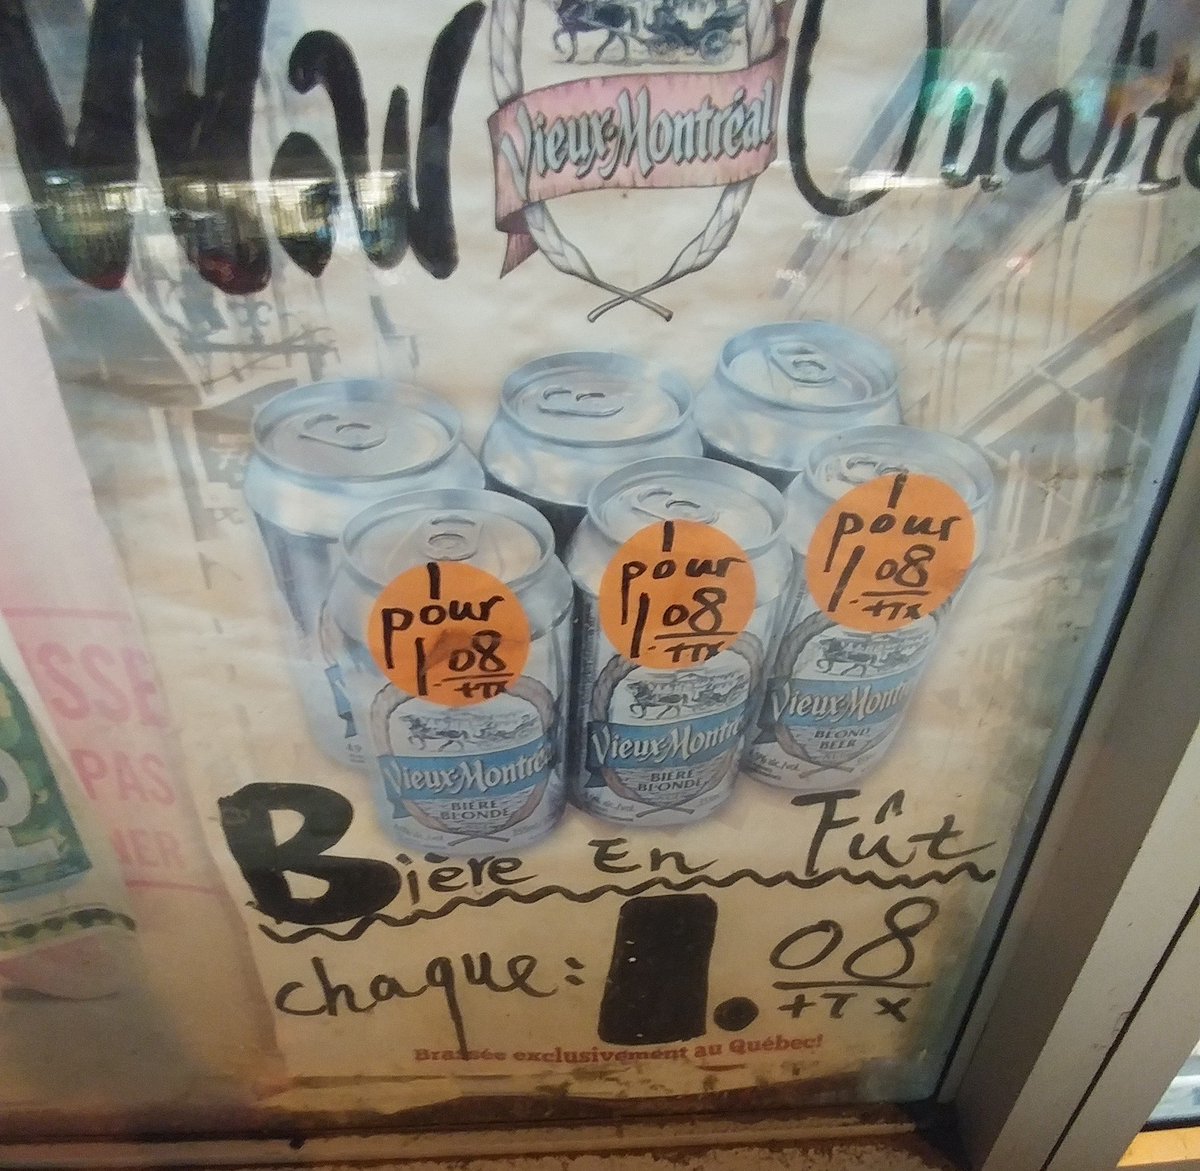 Wow
Vieux-Montréal
Qualité
1
pour
1.08
+TX
1
pour
1.08
+TTX
1
pour
1.08
+TTX
Vieux-Montréal
BIÈRE
BLONDE
Vieux-Montré
BIÈRE
BLONDE
Vieux-Mont
BLOND
BEER
ISSE
PAS
NER
Bière En Fût
chaque: 1.08
+TX
Brassée exclusivement au Québec!